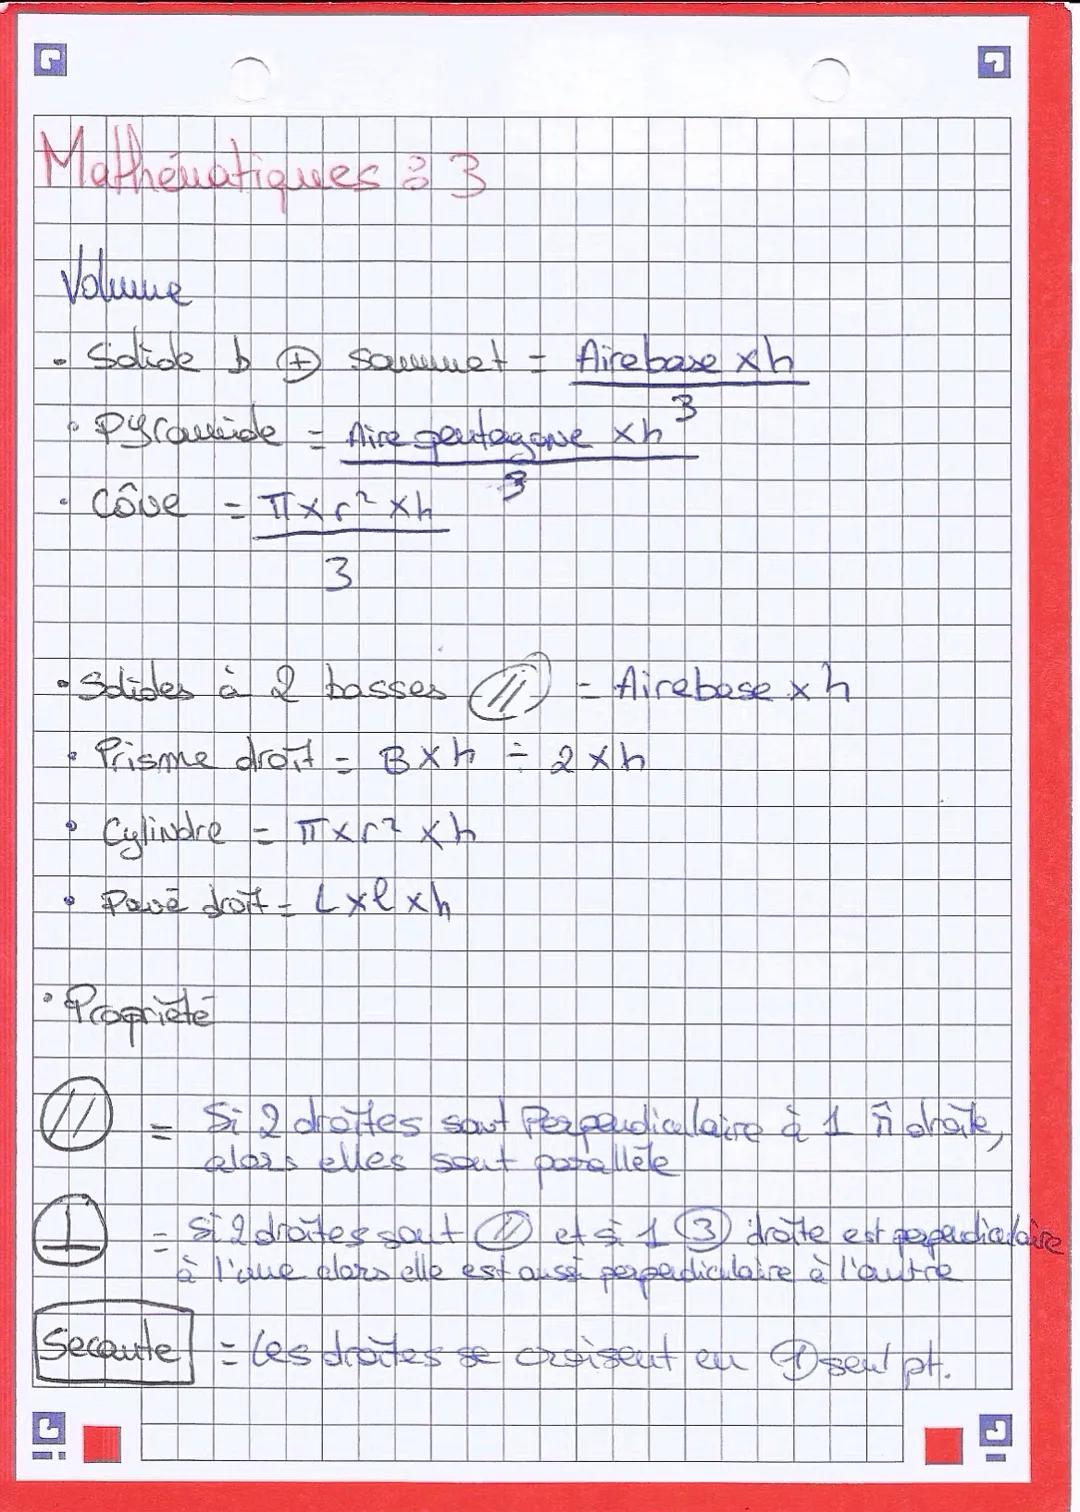 Mathématiques : 3
Volume
• Solide b ⊕ sommet = Aire base × h
3
• Pyramide = Aire pentagone × h
3
• Cône = π × r² × h
3
• Solides à 2 basses // = Aire base × h
• Prisme droit = B × h ÷ 2 × h
• Cylindre = π × r² × h
• Pavé droit = L × l × h
• Propriété
// = Si 2 droites sont Perpendiculaire à 1 m̂ droite,
alors elles sont parallèle
⊥ = Si 2 droites sont // et si 1 ③ droite est perpendiculaire
à l'une alors elle est aussi perpendiculaire à l'autre
Secante = Les droites se croisent en ① seul pt.